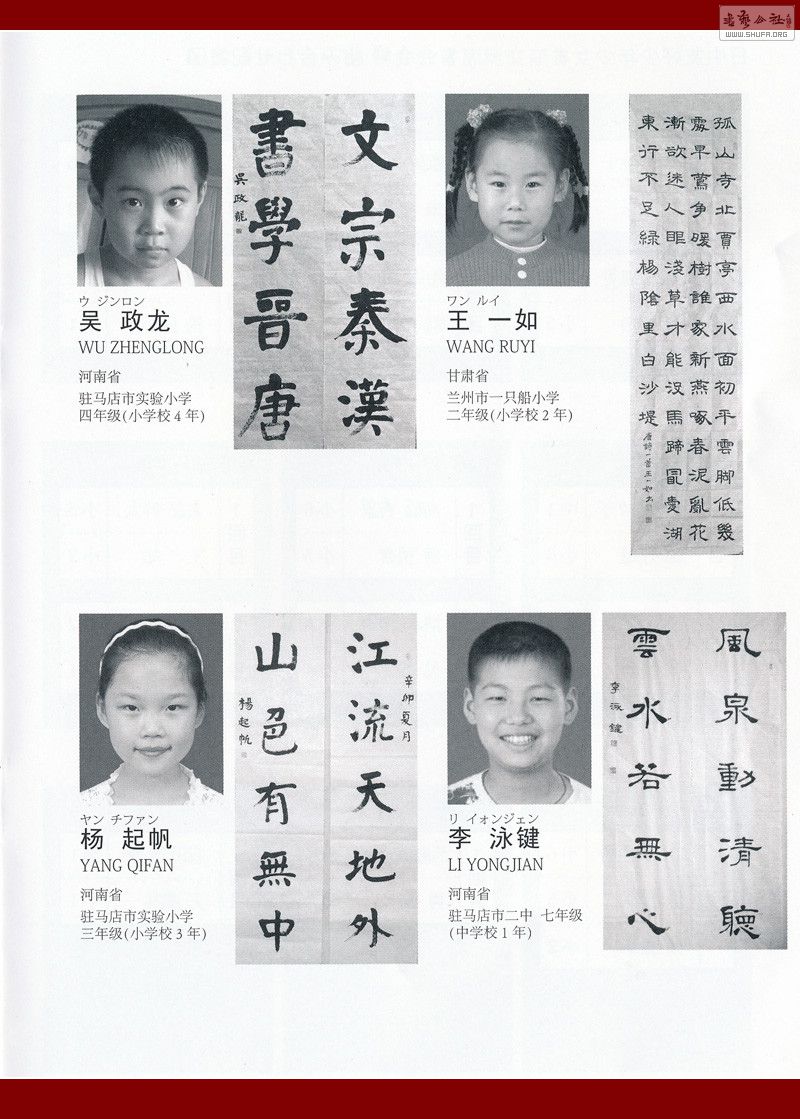 書法公社
WWW.SHUFA.ORG
文宗秦漢
書學晉唐
吴政龍
ウ ジンロン
吴 政龙
WU ZHENGLONG
河南省
驻马店市实验小学
四年级(小学校4年)
孤山寺北賈亭西水面初平雲脚低幾
處早鶯争暖樹誰家新燕啄春泥亂花
漸欲迷人眼淺草才能没馬蹄冣愛湖
東行不足緑楊陰里白沙堤
唐詩一首王一如书
ワン ルイ
王 一如
WANG RUYI
甘肃省
兰州市一只船小学
二年级(小学校2年)
辛卯夏月
江流天地外
山色有無中
楊起帆
ヤン チファン
杨 起帆
YANG QIFAN
河南省
驻马店市实验小学
三年级(小学校3年)
風泉動清聽
雲水若無心
李泳鍵
リ イォンジェン
李 泳键
LI YONGJIAN
河南省
驻马店市二中 七年级
(中学校1年)